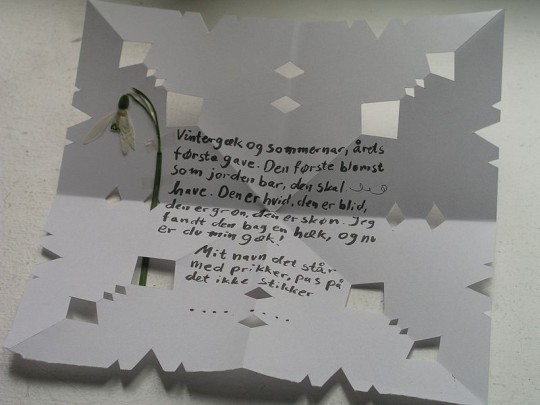 Vintergæk og sommernar, årets
første gave. Den første blomst
som jorden bar, den skal
have. Den er hvid, den er blid,
den er grøn, den er skøn. Jeg
fandt den bag en hæk, og nu
er du min gæk!
Mit navn det står
med prikker, pas på
det ikke stikker
. . . . . . . .